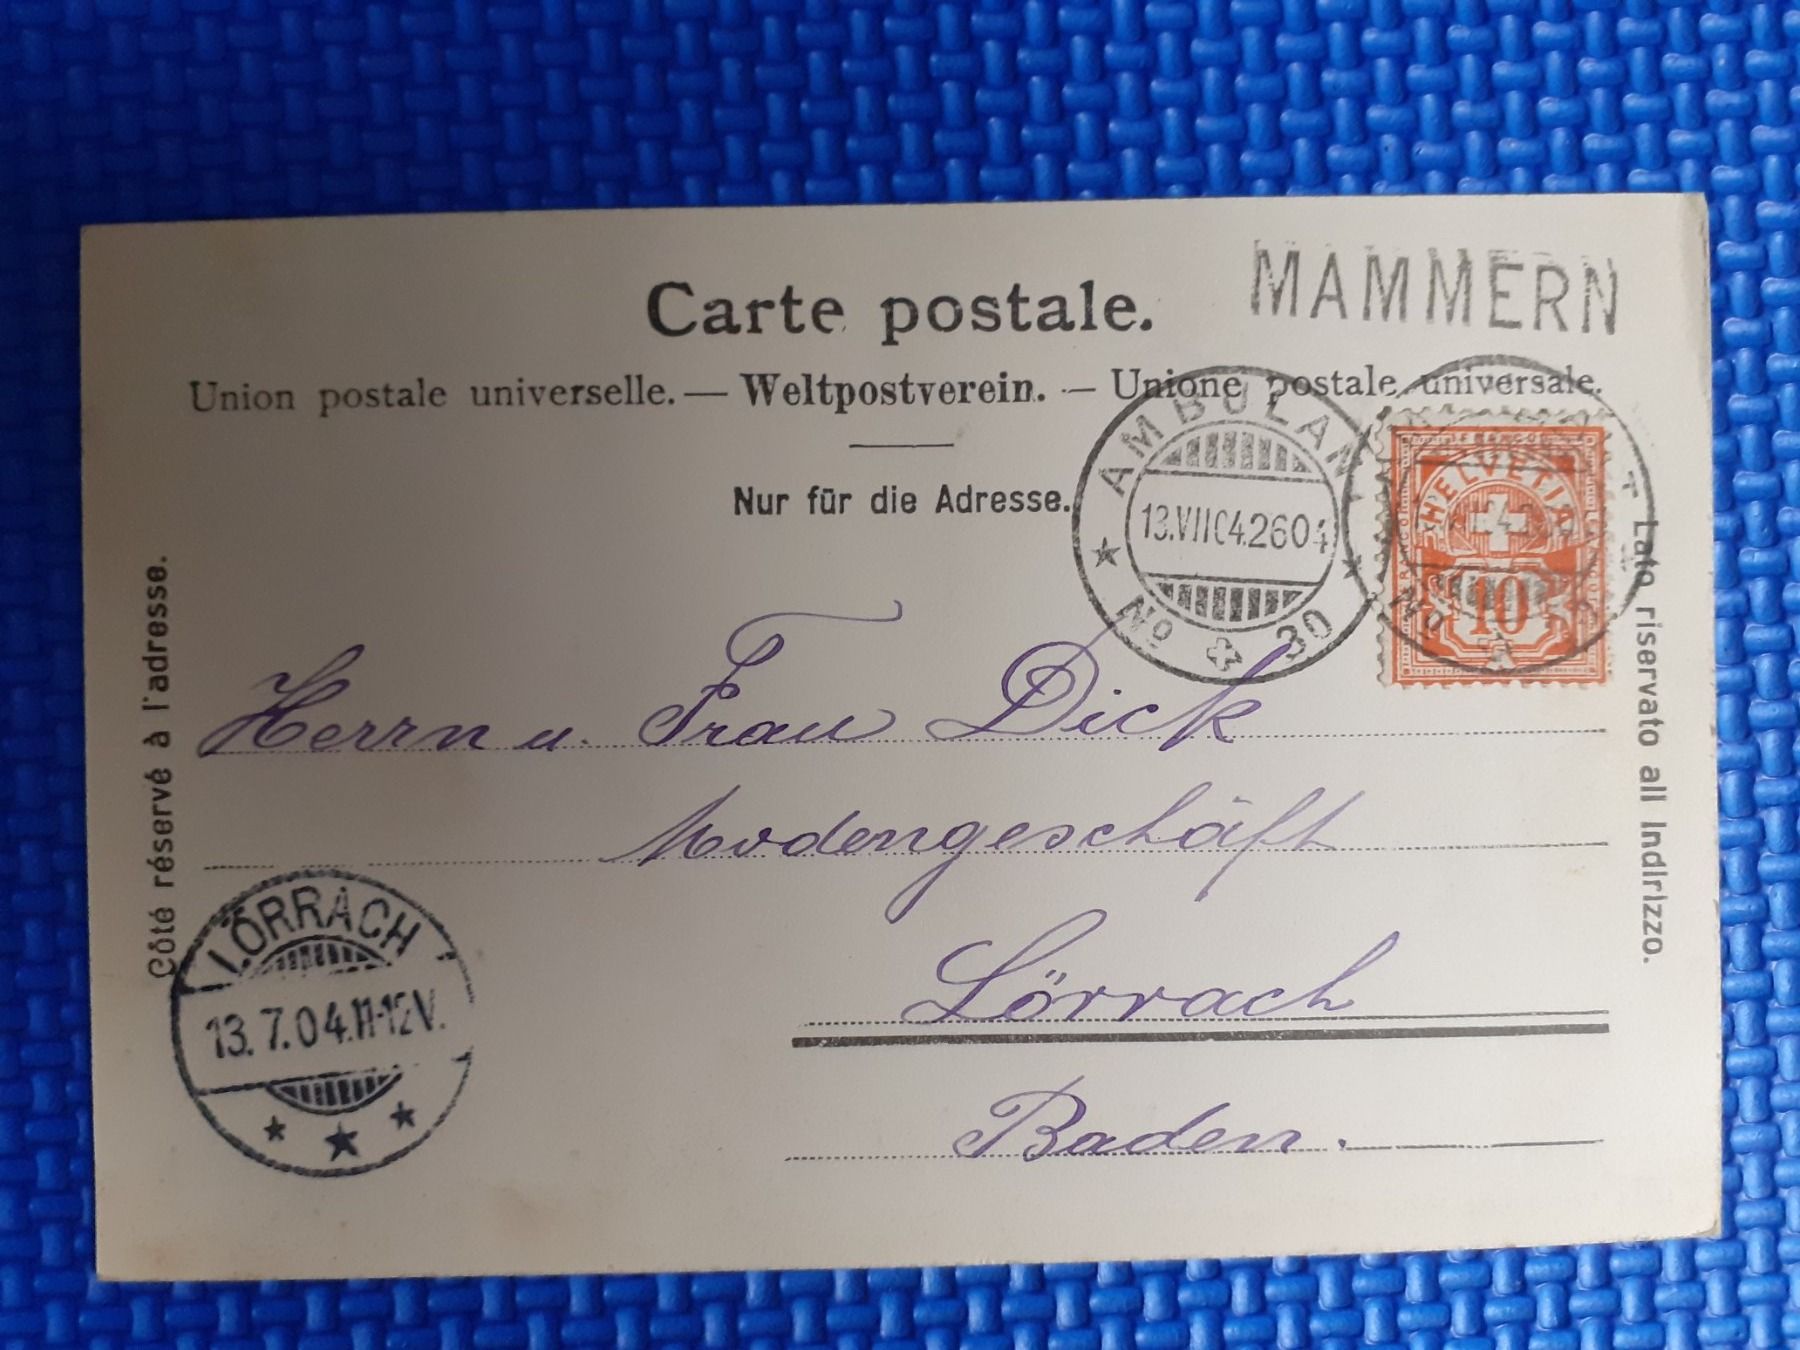 MAMMERN
Carte postale.
Union postale universelle. — Weltpostverein. — Unione postale universale.
Nur für die Adresse.
AMBULANT
13.VII04.2604
No 30
FRANCO
HELVETIA
10
No
Côté réservé à l'adresse.
Lato riservato all indirizzo.
Herrn u. Frau Dick
Modengeschäft
Lörrach
Baden.
LÖRRACH
13.7.04.11-12V.